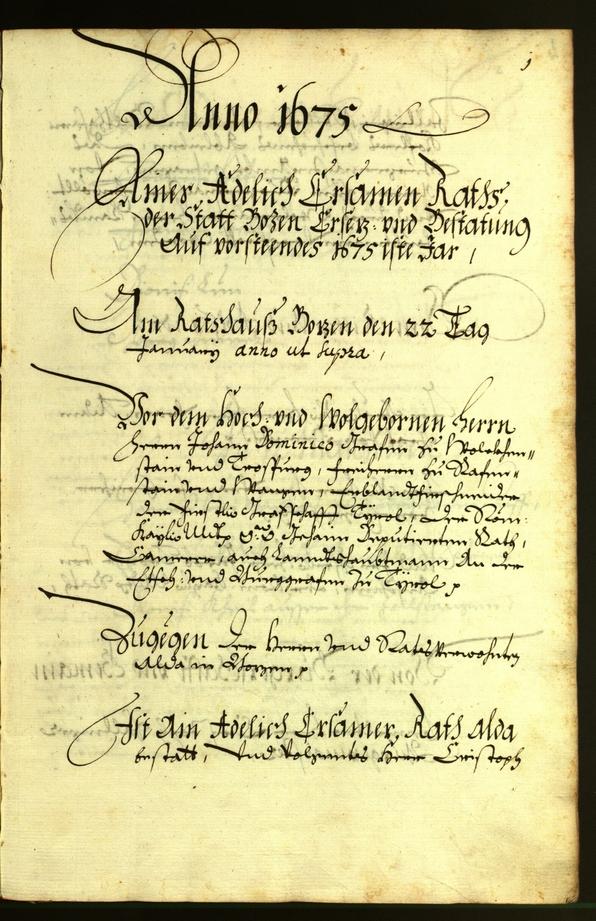 Anno 1675
Ainer Adelich Ersamen Raths,
der Statt Bozen Ersez: und Bestatung
Auf vorsteendes 1675iste Jar,
Am Ratshauß Bozen den 22 Tag
January anno ut supra,
Vor dem Hoch: und Wolgebornen Herrn
Herrn Johann Dominico Grafen zu Wolckhen=
stain und Trospurg, Freiherrn zu
Erblandt
der Fürstlich Grafschafft Tyrol, der Röm:
Kayßl: Geheim Deputierten Rath,
Camerer, auch Landtshaubtmann An der
Etsch: und Burggrafen zu Tyrol p
Zugegen der Herrn und Ratsverwohnten
alda in Bozen p
Ist Ain Adelich Ersamer, Rath alda
bestätt, und volgents Herr Cristoph